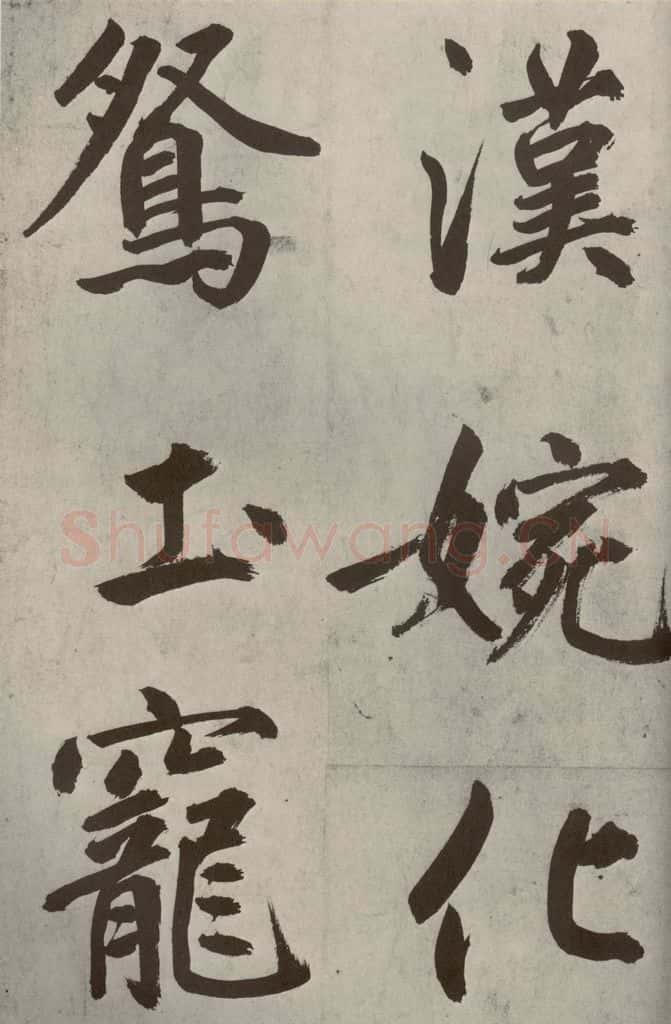 漢婉化
鴛圡竉
Shufawang.CN